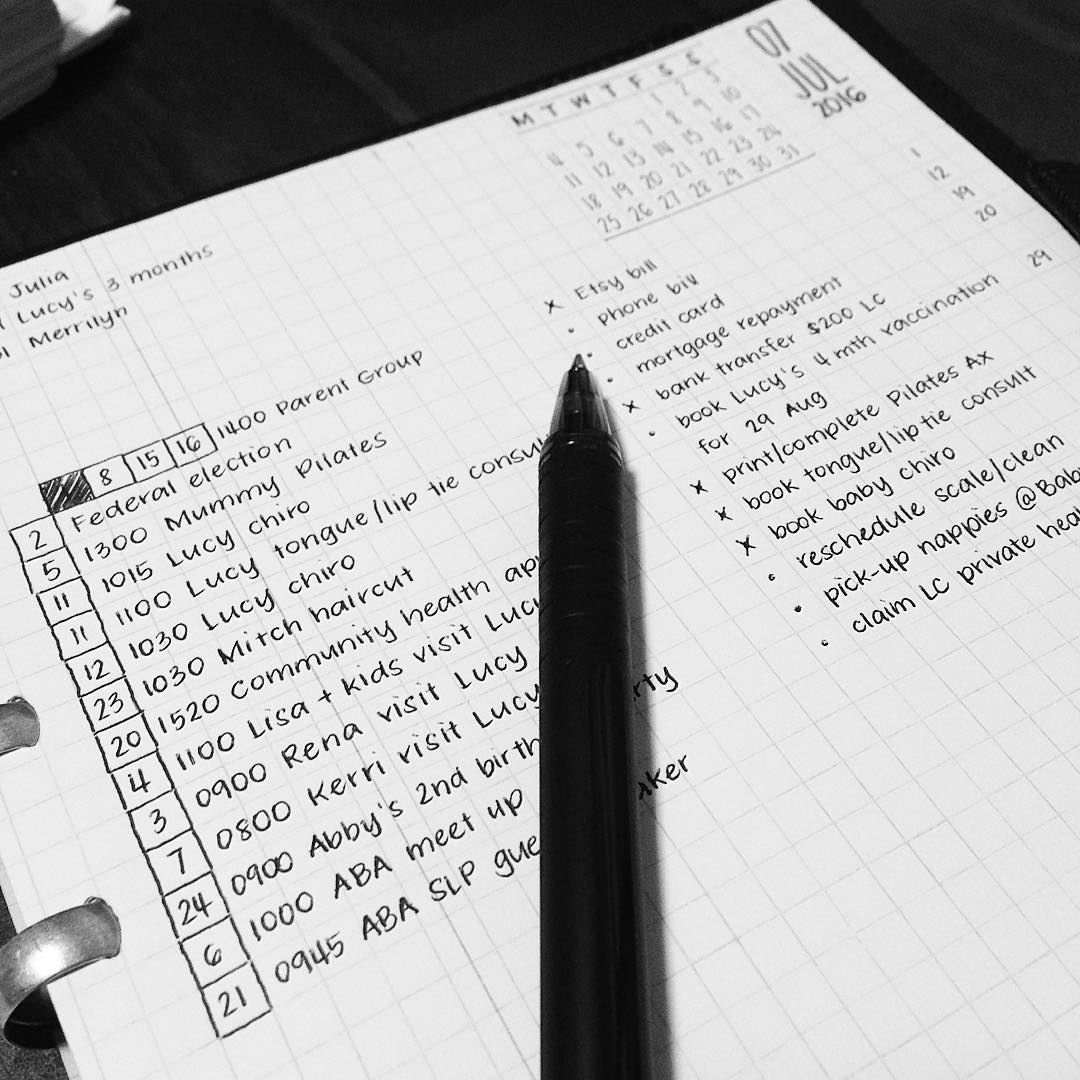 07
JUL
2016
M T W T F S S
1 2 3
4 5 6 7 8 9 10
11 12 13 14 15 16 17
18 19 20 21 22 23 24
25 26 27 28 29 30 31
1
12
19
20
29
Julia
Lucy's 3 months
Merrilyn
8 15 16 1400 Parent Group
2 Federal election
5 1300 Mummy Pilates
11 1015 Lucy chiro
11 1100 Lucy tongue/lip tie consult
12 1030 Lucy chiro
23 1030 Mitch haircut
20 1520 Community health
4 1100 Lisa + kids visit Lucy
3 0900 Rena visit Lucy
7 0800 Kerri visit Lucy
24 0900 Abby's 2nd
6 1000 ABA meet up
21 0945 ABA SLP
x Etsy bill
• phone bill
• credit card
• mortgage repayment
x bank transfer $200 LC
• book Lucy's 4 mth vaccination
for 29 Aug
x print/complete Pilates Ax
x book tongue/lip tie consult
x book baby chiro
• reschedule scale/clean
• pick-up nappies @
• claim LC private